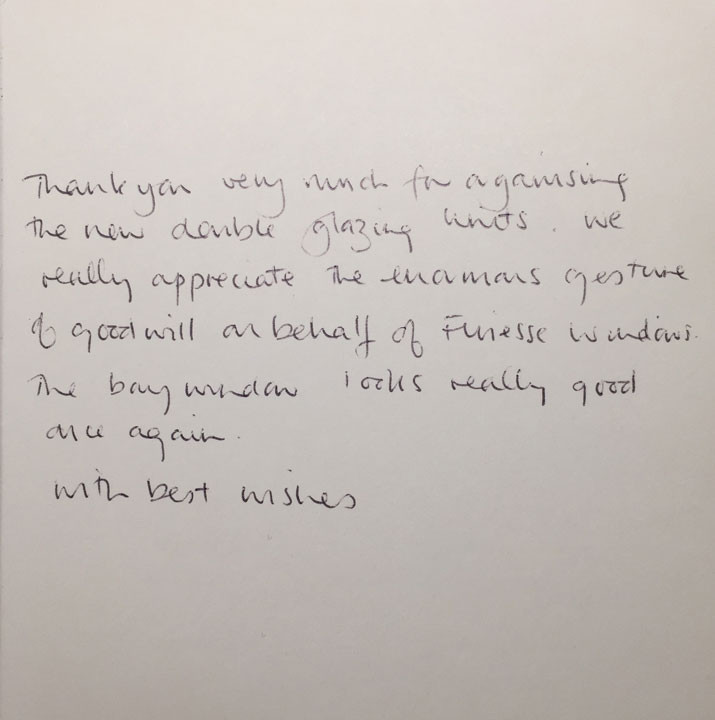 Thank you very much for organising
the new double glazing units. We
really appreciate the enormous gesture
of goodwill on behalf of Finesse Windows.
The bay window looks really good
once again.
With best wishes